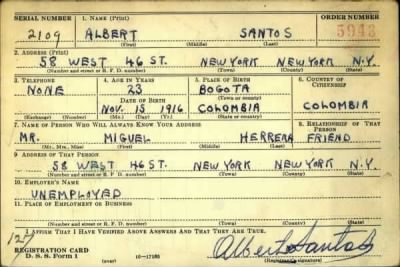 SERIAL NUMBER 1. NAME (Print) ORDER NUMBER
2109 ALBERT SANTOS 5943
(First) (Middle) (Last)
2. ADDRESS (Print)
58 WEST 46 ST. NEW YORK NEW YORK N.Y.
(Number and street or R. F. D. number) (Town) (County) (State)
3. TELEPHONE 4. AGE IN YEARS 5. PLACE OF BIRTH 6. COUNTRY OF CITIZENSHIP
NONE 23 BOGOTA
DATE OF BIRTH (Town or county)
NOV. 15 1916 COLOMBIA COLOMBIA
(Exchange) (Number) (Mo.) (Day) (Yr.) (State or country)
7. NAME OF PERSON WHO WILL ALWAYS KNOW YOUR ADDRESS 8. RELATIONSHIP OF THAT PERSON
MR. MIGUEL HERRERA FRIEND
(Mr., Mrs., Miss) (First) (Middle) (Last)
9. ADDRESS OF THAT PERSON
58 WEST 46 ST. NEW YORK NEW YORK N.Y.
(Number and street or R. F. D. number) (Town) (County) (State)
10. EMPLOYER'S NAME
UNEMPLOYED
11. PLACE OF EMPLOYMENT OR BUSINESS
(Number and street or R. F. D. number) (Town) (County) (State)
I AFFIRM THAT I HAVE VERIFIED ABOVE ANSWERS AND THAT THEY ARE TRUE.
REGISTRATION CARD Alberto Santos
D. S. S. Form 1 (over) 16-17105 (Registrant's signature)